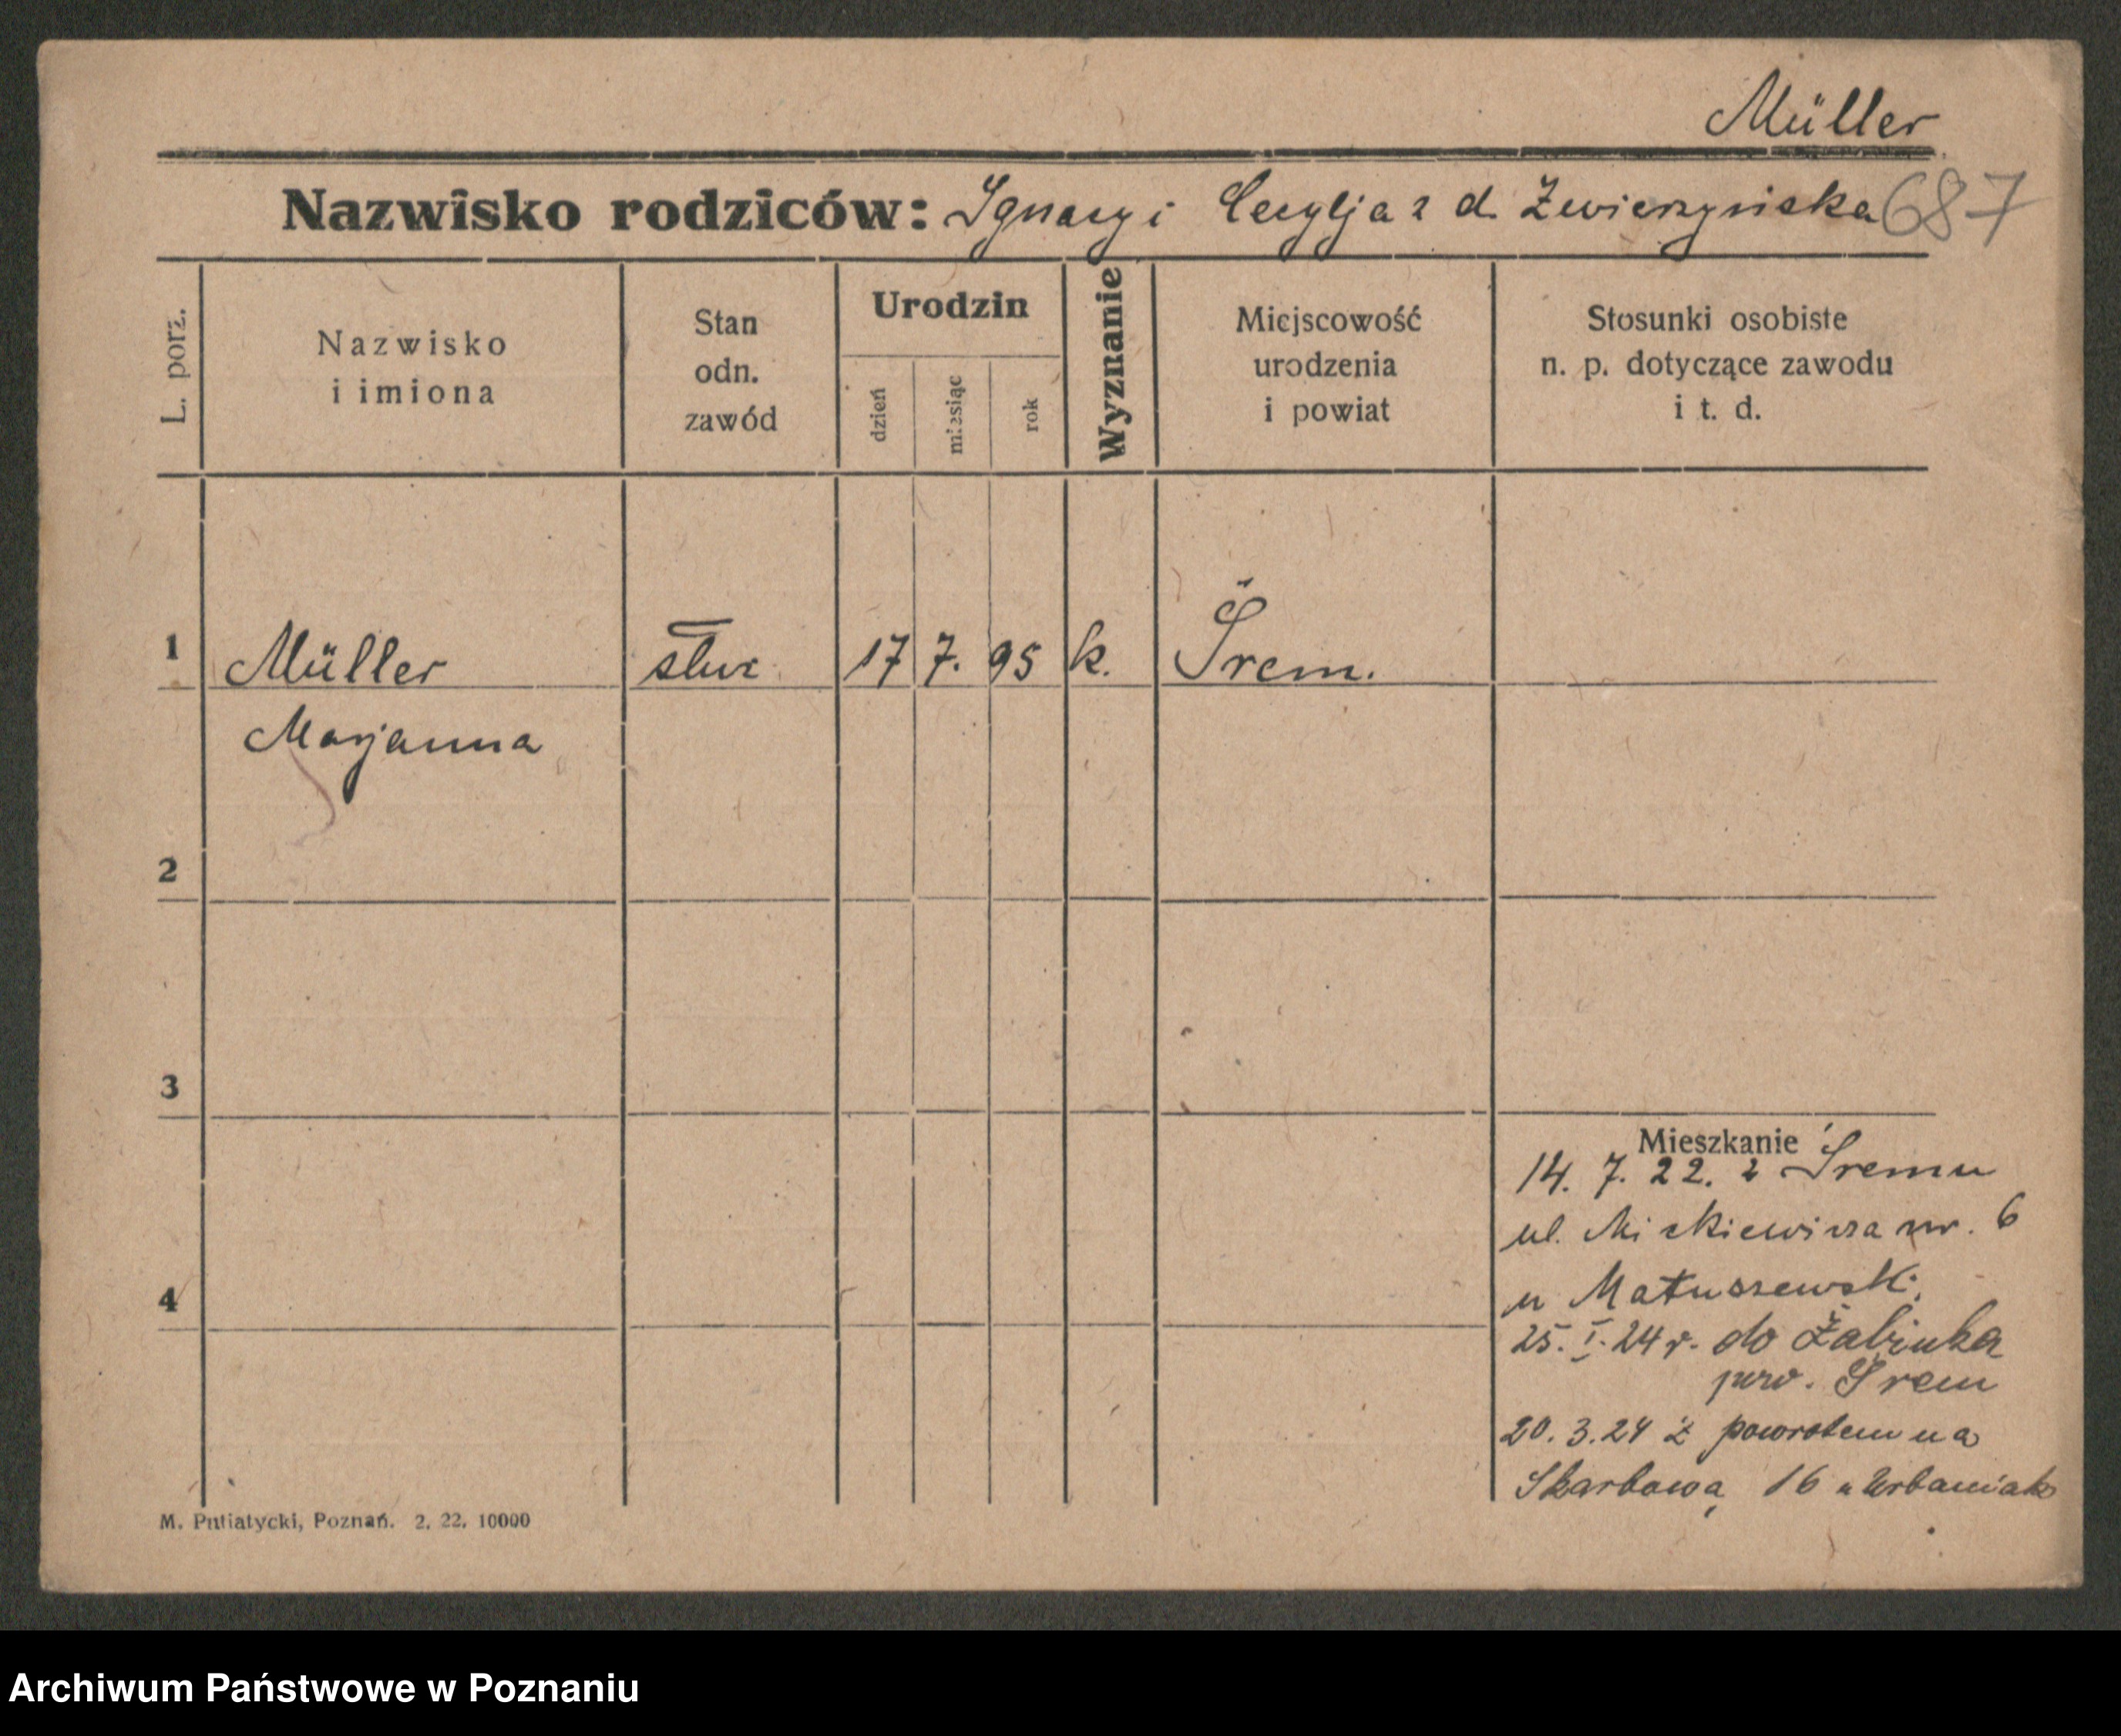 Müller
Nazwisko rodziców: Ignacy i Cecylja z d. Zwierzyńska 687
L. porz.
Nazwisko
i imiona
Stan
odn.
zawód
Urodzin
dzień
miesiąc
rok
Wyznanie
Miejscowość
urodzenia
i powiat
Stosunki osobiste
n. p. dotyczące zawodu
i t. d.
1 Müller służ. 17 7. 95 k. Śrem.
Marjanna
2
3
Mieszkanie
14. 7. 22. z Śremu
ul. Mickiewicza nr. 6
u Matuszewski,
4
25. I. 24 r. do Żabinka
pow. Śrem
20. 3. 24 z powrotem na
Skarbową 16 u Urbaniak
M. Putiatycki, Poznań. 2. 22. 10000
Archiwum Państwowe w Poznaniu